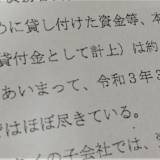 うに貸し付けた資金等、本
貸付金として計上）は約
あいまって、令和3年3
ではほぼ尽きている。
の子会社では、